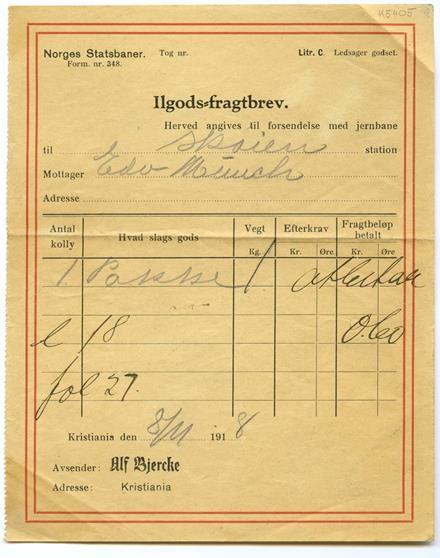 K5405
Norges Statsbaner. Tog nr. Litr. C. Ledsager godset.
Form. nr. 348.
Ilgods-fragtbrev.
Herved angives til forsendelse med jernbane
til Skøien station
Mottager Edv Munch
Adresse
Antal kolly Hvad slags gods Vegt Efterkrav Fragtbeløp betalt
Kg. Kr. Øre Kr. Øre
1 Pakke 1
l 18 0.60
fol 27.
Kristiania den 8/11 1918
Avsender: Alf Bjercke
Adresse: Kristiania